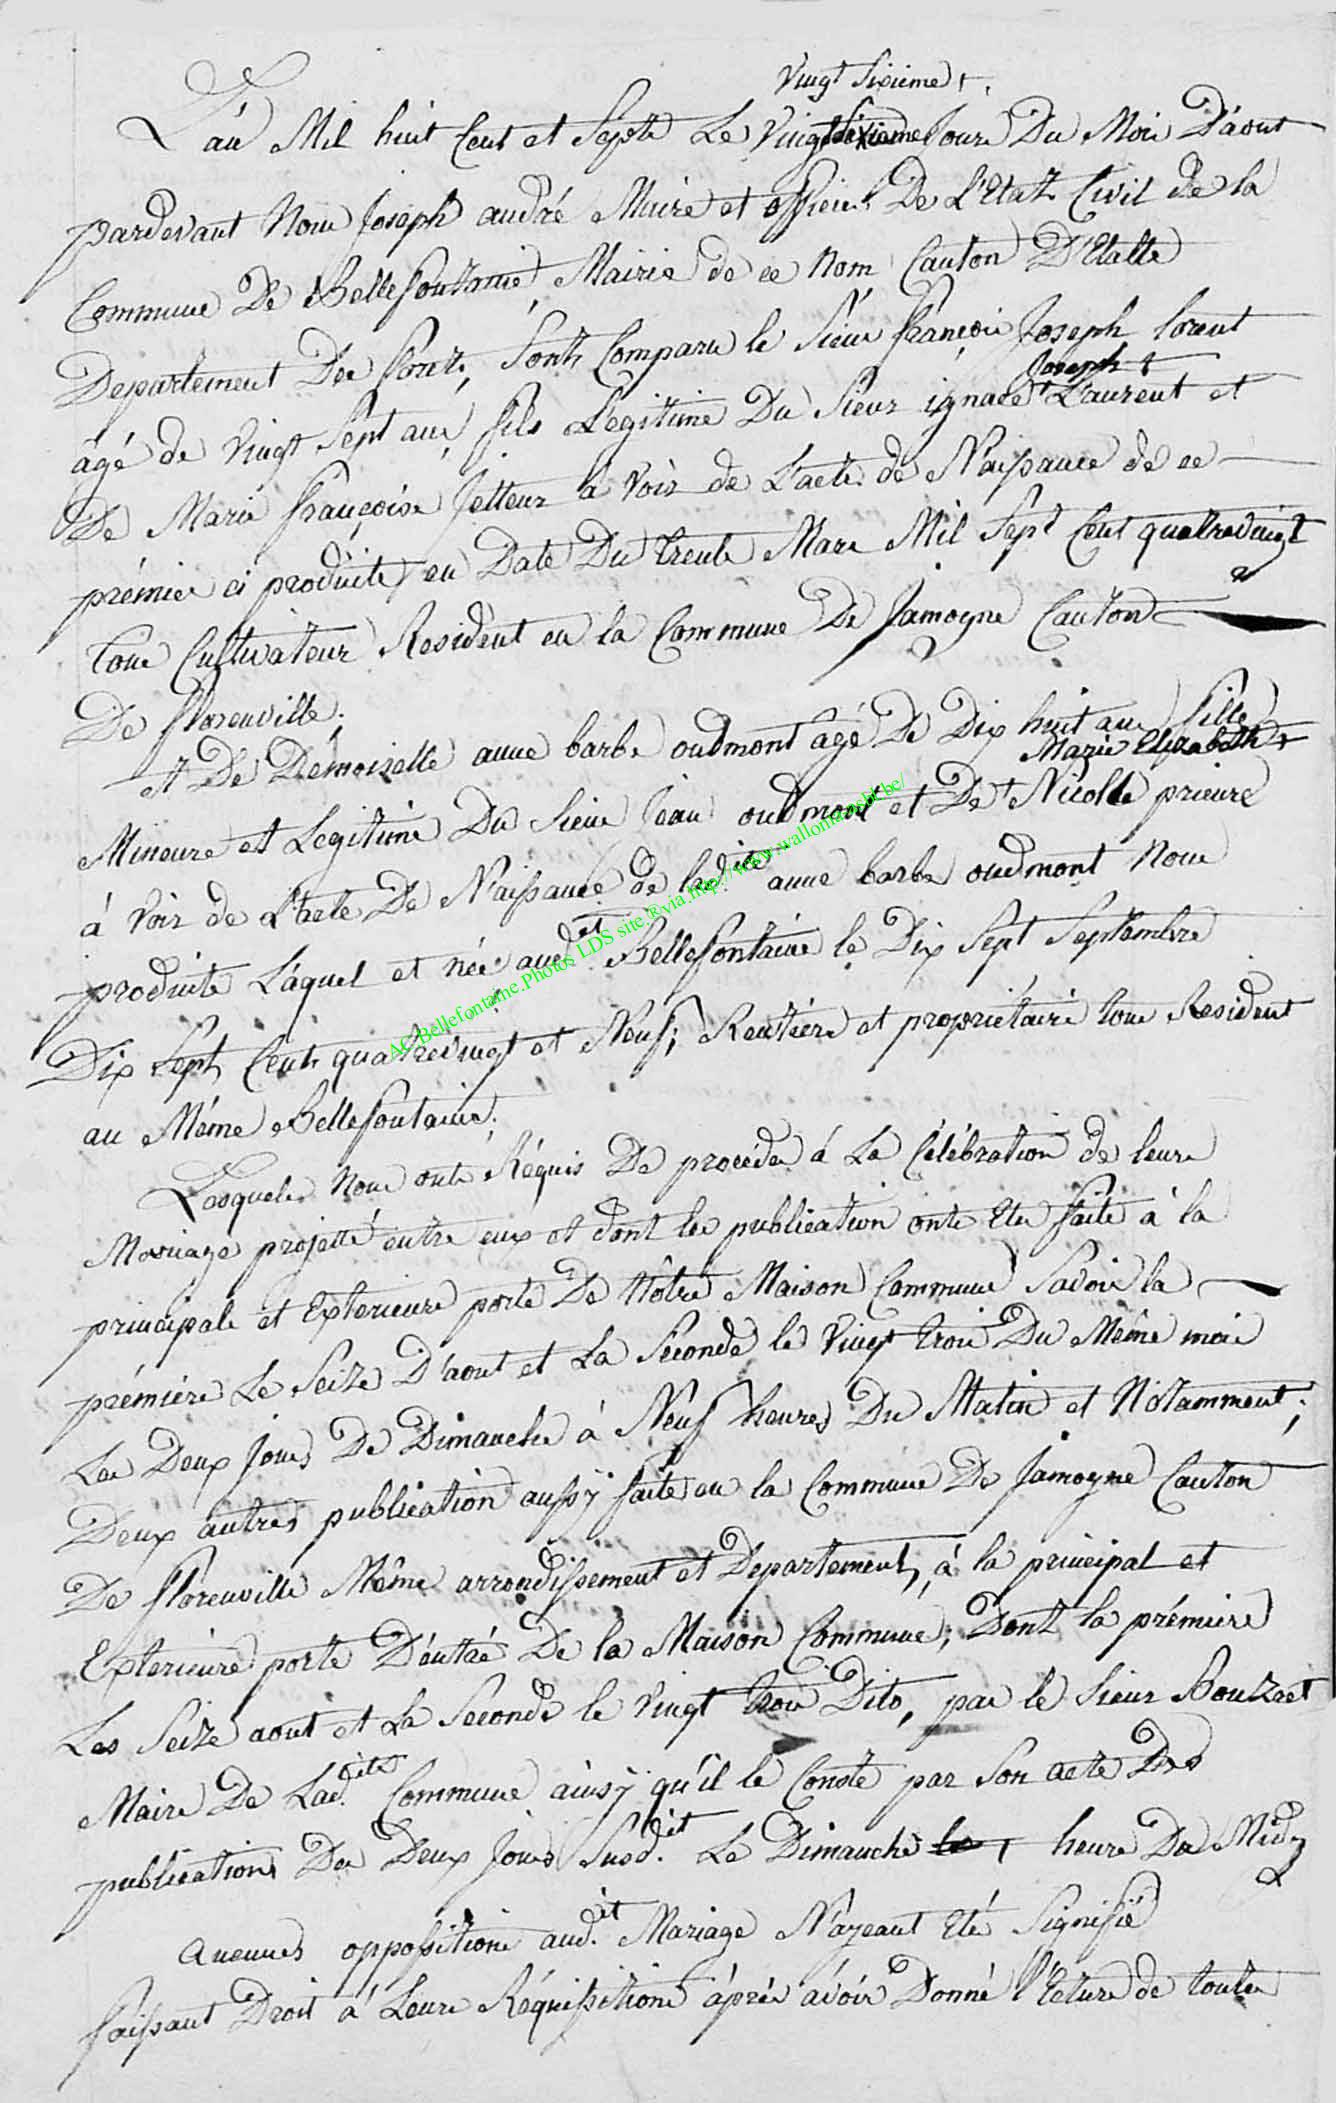 Vingt Sixieme +.
L'an Mil huit Cent et Septe Le Vingt Sixieme Jours Du Mois D'aout
pardevant Nous Joseph andré Maire et officier De L'Etat Civil de la
Commune De Bellefontaine, Mairie de ce Nom Canton D'Etalle
Departement Des foret, Sont Comparu le Sieur françois Joseph lorent
Joseph +
agé de Vingt Sept ans, fils Légitime Du Sieur ignace + Laurent et
De Marie françoise Jetteur à Voir de L'acte de Naissance de ce
prémier ci produite en Date Du trente Mars Mil Sept Cent quatrevingt
tous Cultivateur Resident en la Commune De Jamoyne Canton
De florenville;
et De Demoiselle anne barbe oudmont agé De Dix huit ans fille
Marie Elizabeth +
Mineure et Legitime Du Sieur Jean oudmont et De + Nicolle prieure
à Voir de L'acte De Naissance de ladite anne barbe oudmont Nous
produite Láquel et née audet Bellefontaine le Dix Sept Septembre
Dix Sept Cents quatrevingt et Neuf; Rentiere et propriétaire tous Resident
au Méme Bellefontaine;
Lesquels Nous onts Réquis De procéder á La Célébration de leurs
Mariage projetté entre eux et dont les publication onts Eté faite à la
principale et Exterieure porte De Nôtre Maison Commune Savoir la
prémiere Le Seize D'aout et La Seconde le Vingt trois Du Même mois
Les Deux Jours De Dimanche à Neuf heures Du Matin et Nôtamment;
Deux autres publication aussy faite en la Commune De Jamoyne Canton
De florenville Même arrondissement et Departement, à la principal et
Exterieure porte D'éntrée De la Maison Commune; Dont la prémiere
Les Seize aout et La Seconde le Vingt trois Dito, par le Sieur Boulzaet
Maire De Lad.ite Commune ainsy qu'il le Conste par Son acte Des
publications Des Deux Jours Susd.it Le Dimanche heure Du Midy
Aucunes oppositions aud.it Mariage N'ayeant Eté Signifié
faissant Droit á Leurs Réquisitions áprés ávoir Donné l'Ecture de toutes
AC.Bellefontaine.Photos LDS site.®via.http://www.wallonia.asbl.be/